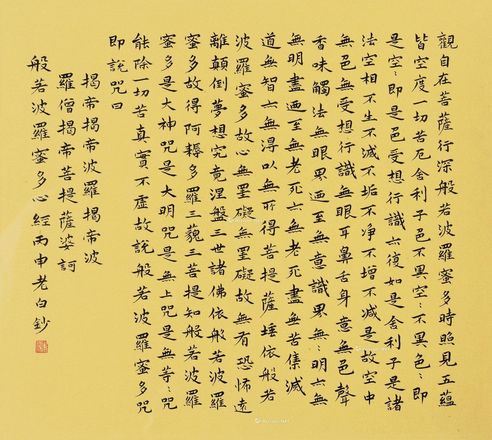 觀自在菩薩行深般若波羅蜜多時照見五蘊
皆空度一切苦厄舍利子色不異空〻不異色〻即
是空〻即是色受想行識亦復如是舍利子是諸
法空相不生不滅不垢不净不增不減是故空中
無色無受想行識無眼耳鼻舌身意無色聲
香味觸法無眼界迺至無意識界無〻明亦無
無明盡迺至無老死亦無老死盡無苦集滅
道無智亦無得以無所得菩提薩埵依般若
波羅蜜多故心無罣礙無罣礙故無有恐怖遠
離顛倒夢想究竟涅盤三世諸佛依般若波羅
蜜多故得阿耨多羅三藐三菩提知般若波羅
蜜多是大神咒是大明咒是無上咒是無等〻咒
能除一切苦真實不虛故說般若波羅蜜多咒
即說咒曰
揭帝揭帝波羅揭帝波
羅僧揭帝菩提薩婆訶
般若波羅蜜多心經丙申老白鈔